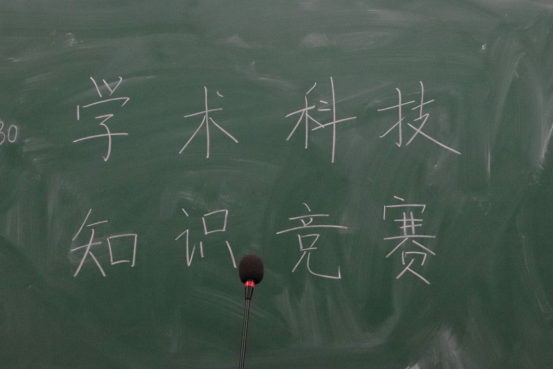 学术科技
30
知识竞赛